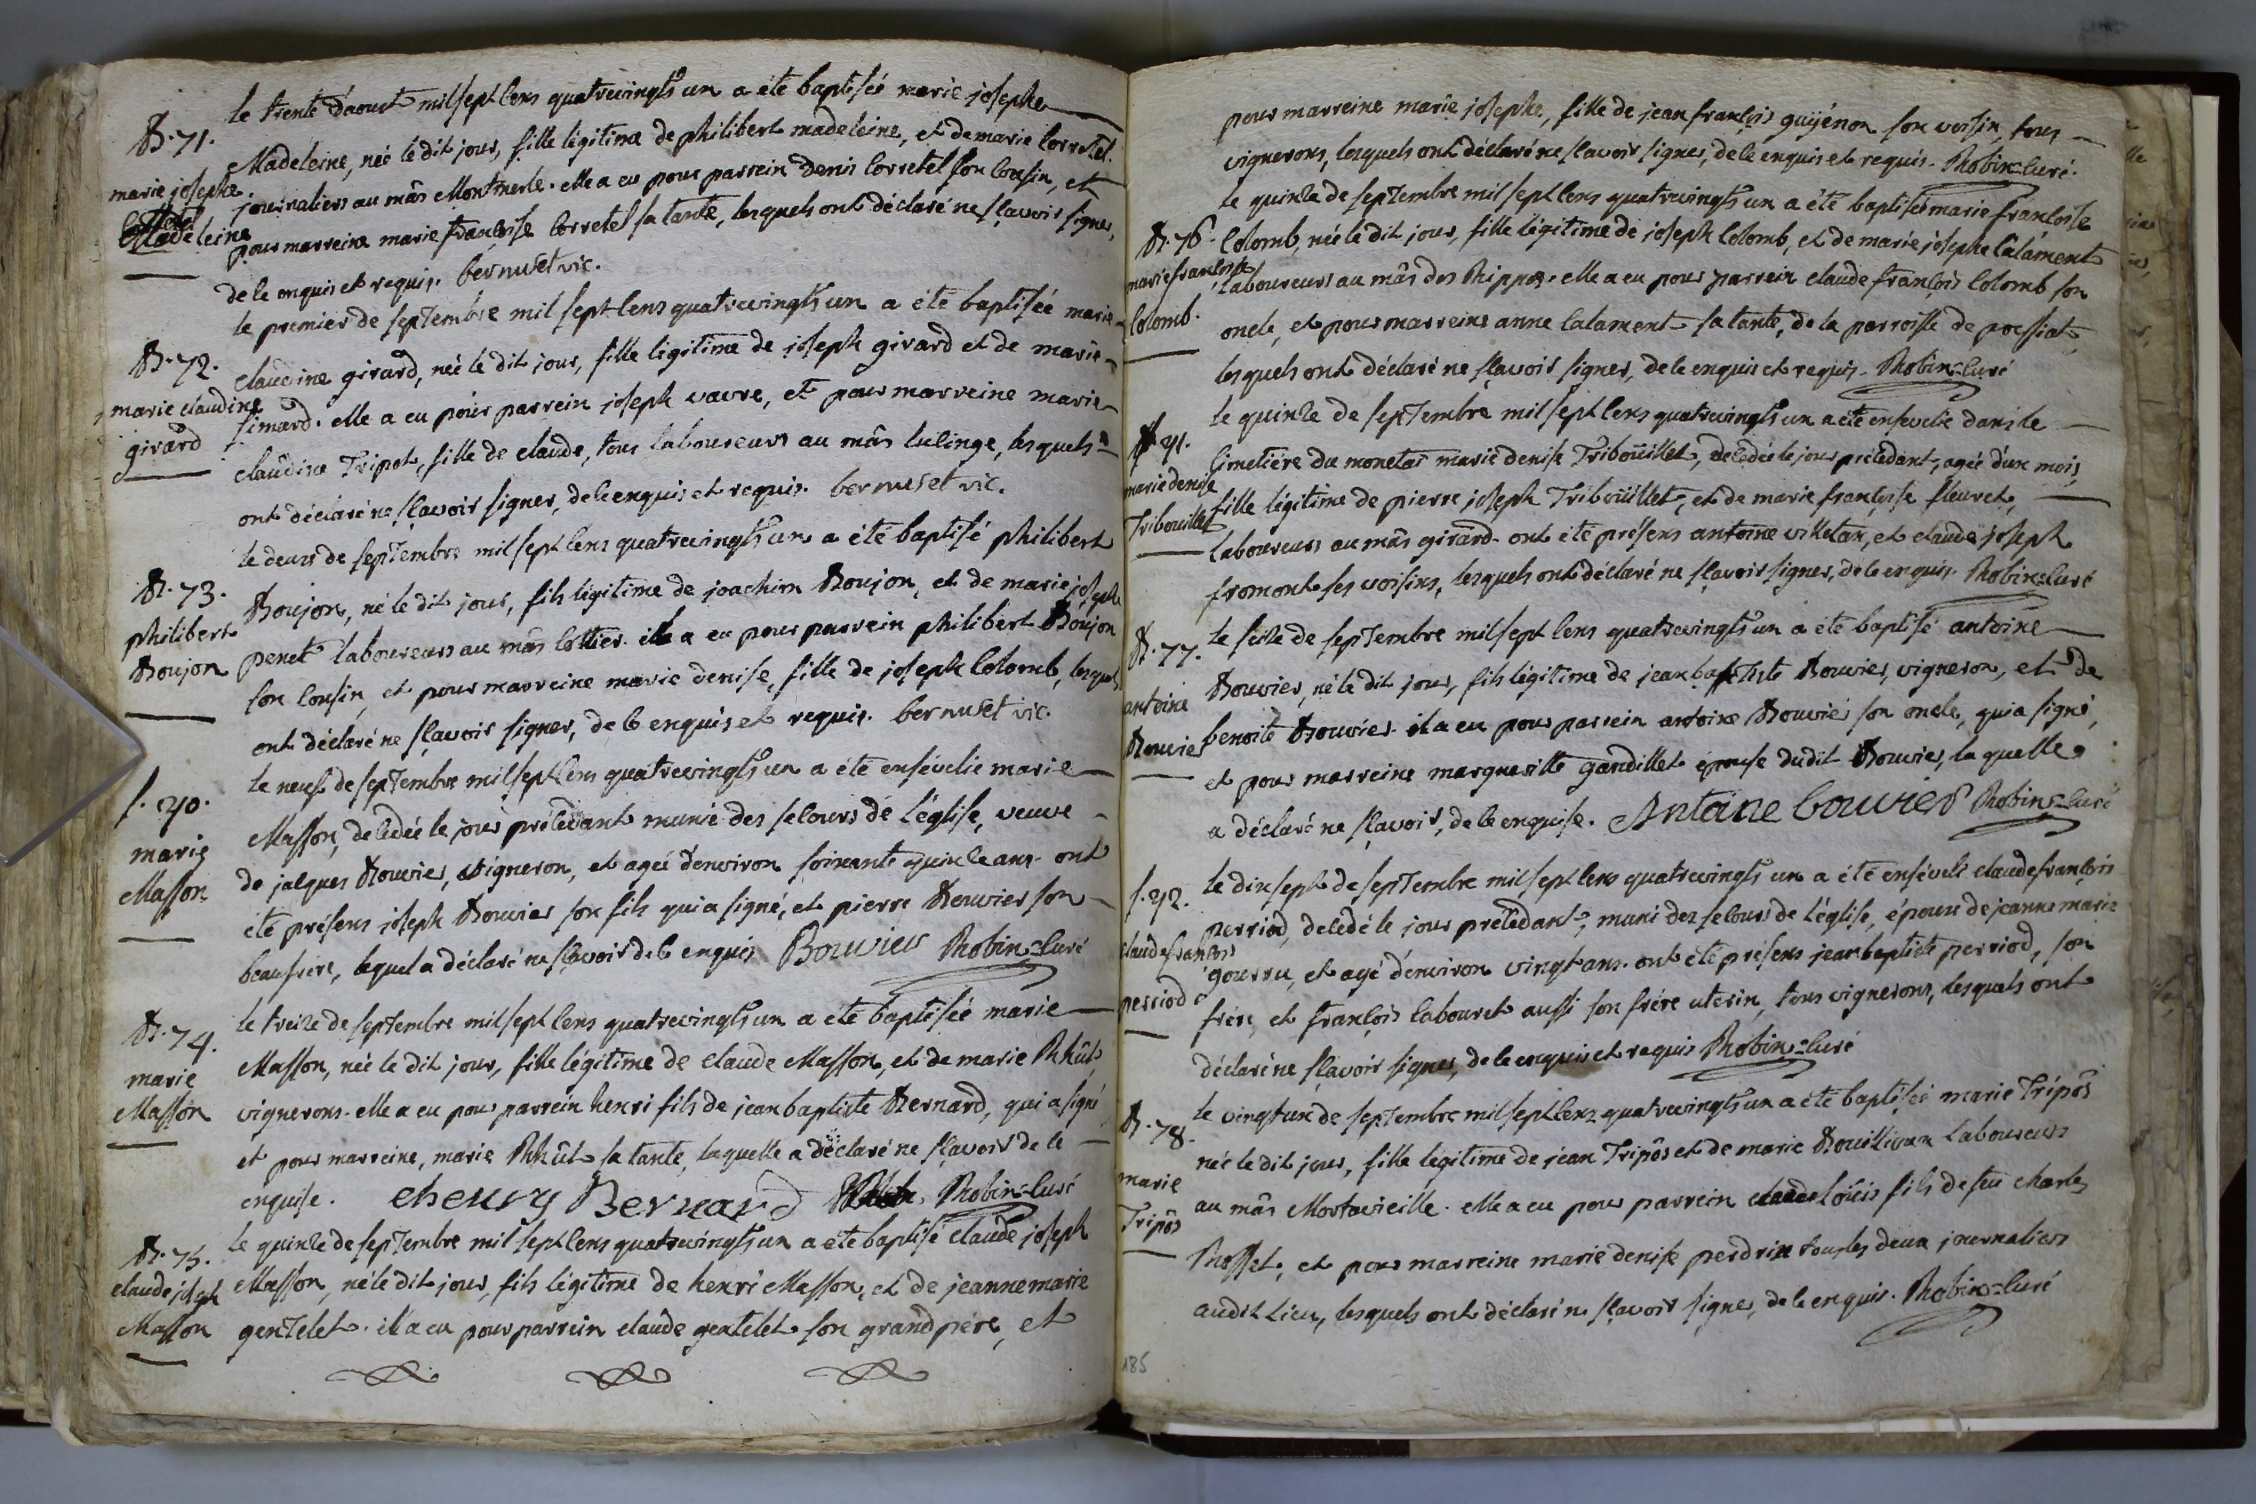 le trente d'aoust mil sept cens quatrevingts un a été baptisée marie josephe
B. 71.
marie josephe
Madeleine
Madeleine, née le dit jour, fille légitime de philibert madeleine, et de marie corretel
journaliers au mâs Montmerle. elle a eu pour parrein denis corretel son cousin, et
pour marreine marie françoise corretel sa tante, lesquels ont déclaré ne sçavoir signer,
de ce enquis et requis. bernuset vic.
le premier de septembre mil sept cens quatrevingts un a été baptisée marie
B. 72.
marie claudine
girard
claudine girard, née le dit jour, fille légitime de joseph girard et de marie
simard. elle a eu pour parrein joseph vavre, et pour marreine marie
claudine Tripot, fille de claude, tous laboureurs au mâs lulinge, lesquels
ont déclaré ne sçavoir signer, de ce enquis et requis. bernuset vic.
le deux de septembre mil sept cens quatrevingts un a été baptisé philibert
B. 73.
philibert
Boujon
Boujon, né le dit jour, fils légitime de joachim Boujon, et de marie josephe
penet laboureurs au mâs cottier. il a eu pour parrein philibert Boujon
son cousin, et pour marreine marie denise, fille de joseph colomb, lesquels
ont déclaré ne sçavoir signer, de ce enquis et requis. bernuset vic.
le neuf de septembre mil sept cens quatrevingts un a été ensévelie marie
s. 90.
marie
Masson
Masson, decedée le jour précédant munie des secours de l'église, veuve
de jacques Bouvier, vigneron, et agée d'environ soixante quinze ans. ont
été présens joseph Bouvier son fils qui a signé, et pierre Bouvier son
beaufrère, lequel a déclaré ne sçavoir de ce enquis Bouvier Robin curé
le treize de septembre mil sept cens quatrevingts un a été baptisée marie
B. 74.
marie
Masson
Masson, née le dit jour, fille légitime de claude Masson, et de marie
vignerons. elle a eu pour parrein henri fils de jean baptiste Bernard, qui a signé
et pour marreine, marie sa tante, laquelle a déclaré ne sçavoir de ce
enquise. henry Bernard Robin curé
le quinze de septembre mil sept cens quatrevingts un a été baptisé claude joseph
B. 75.
claude joseph
Masson
Masson, né le dit jour, fils légitime de henri Masson, et de jeanne marie
gentelet. il a eu pour parrein claude gentelet son grand père, et
pour marreine marie josephe, fille de jean françois guyénon son voisin, tous
vignerons, lesquels ont déclaré ne sçavoir signer, de ce enquis et requis. Robin curé.
le quinze de septembre mil sept cens quatrevingts un a été baptisée marie françoise
B. 76.
marie françoise
Colomb.
Colomb, née le dit jour, fille légitime de joseph Colomb, et de marie josephe Calament
laboureurs au mâs des Phippos. elle a eu pour parrein claude françois Colomb son
oncle, et pour marreine anne calament sa tante, de la parroisse de poessiat
lesquels ont déclaré ne sçavoir signer, de ce enquis et requis. Robin curé
le quinze de septembre mil sept cens quatrevingts un a été ensevelie dans le
s. 91.
marie denise
Tribouillet
Cimetière du monetai marie denise Tribouillet, decedée le jour précédant, agée d'un mois,
fille légitime de pierre joseph Tribouillet, et de marie françoise fleuret,
laboureurs au mâs girard. ont été présens antoine villetan, et claude joseph
fromont ses voisins, lesquels ont déclaré ne sçavoir signer, de ce enquis. Robin curé
le seize de septembre mil sept cens quatrevingts un a été baptisé antoine
B. 77.
antoine
Bouvier
Bouvier, né le dit jour, fils légitime de jean baptiste Bouvier, vigneron, et de
benoite Bouvier. il a eu pour parrein antoine Bouvier son oncle, qui a signé,
et pour marreine margueritte gandillet épouse dudit Bouvier, laquelle
a déclaré ne sçavoir, de ce enquise. Antoine bouvier Robin curé
le dix sept de septembre mil sept cens quatrevingts un a été ensévéli claude françois
s. 92.
claude françois
perriod
perriod, decedé le jour précédant, muni des secours de l'église, époux de jeanne marie
gourru, et agé d'environ vingt ans. ont été présens jean baptiste perriod, son
frère, et françois labouret aussi son frère uterin, tous vignerons, lesquels ont
déclaré ne sçavoir signer, de ce enquis et requis Robin curé
le vingt un de septembre mil sept cens quatrevingts un a été baptisée marie Tripos
B. 78.
marie
Tripos
née le dit jour, fille légitime de jean Tripos et de marie Bouillivan laboureurs
au mâs Mortavieille. elle a eu pour parrein louis fils de feu charles
Rosset, et pour marreine marie denise perdrix tous les deux journaliers
audit lieu, lesquels ont déclaré ne sçavoir signer, de ce enquis. Robin curé
185